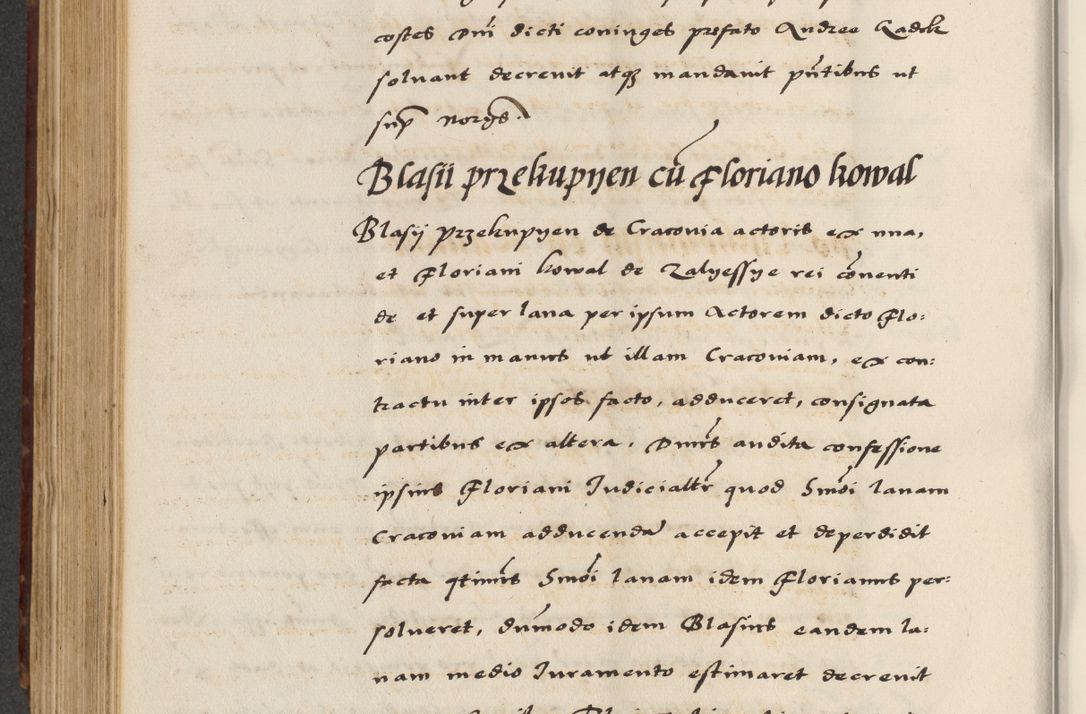 costes Dni dicti coninges prefato Andree Kadek
solvant decrevit atq mandavit pntibus ut
sup norgs.
Blasii przekupyen cū Floriano kowal
Blasij przekupyen de Cracovia actoris ex una,
et Floriani kowal de Zalyessye rei cōventi
de et super lana per ipsum Actorem dicto Flo:
riano in manus ut illam Cracoviam, ex con:
tractu inter ipsos facto, adduceret, consignata
partibus ex altera. Dnus audita confessione
ipsius Floriani Judicialtr quod Smōi lanam
Cracoviam adducendā accepit et deperdidit
facta qtinus Smōi lanam idem Florianus per:
solveret, dūmodo idem Blasius eandem la:
nam medio Juramento estimaret decrevit